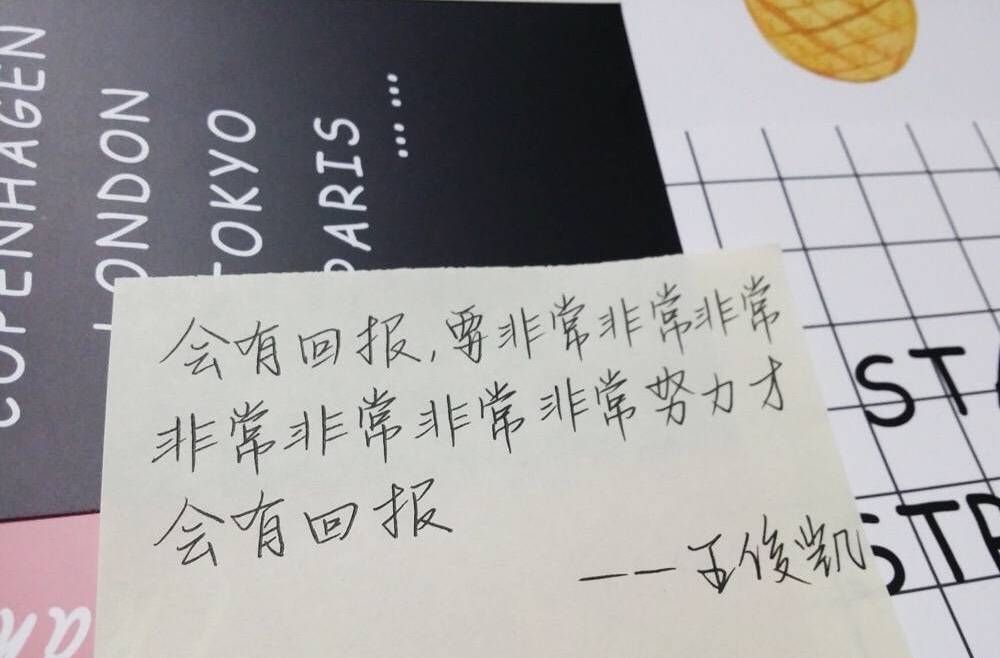 COPENHAGEN
LONDON
TOKYO
PARIS
... ...
会有回报,要非常非常非常
非常非常非常非常努力才
会有回报
——王俊凯
STA
STR